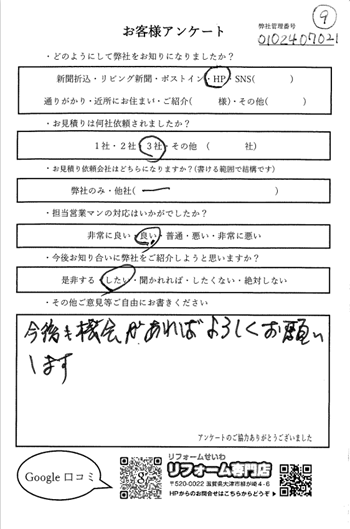 ⑨
お客様アンケート
弊社管理番号
0102407021
・どのようにして弊社をお知りになりましたか?
新聞折込・リビング新聞・ポストイン・HP・SNS( )
通りがかり・近所にお住まい・ご紹介( 様)・その他( )
・お見積りは何社依頼されましたか?
1社・2社・3社・その他 ( 社)
・お見積り依頼会社はどちらになりますか?(書ける範囲で結構です)
弊社のみ・他社( ー )
・担当営業マンの対応はいかがでしたか?
非常に良い・良い・普通・悪い・非常に悪い
・今後お知り合いに弊社をご紹介しようと思いますか?
是非する・したい・聞かれれば・したくない・絶対しない
・その他ご意見等ご自由にお書きください
今後も機会があればよろしくお願い
します
アンケートのご協力ありがとうございました
Google 口コミ
リフォームせいわ
リフォーム専門店
〒520-0022 滋賀県大津市柳が崎4-6
HPからのお問合せはこちらからどうぞ▶